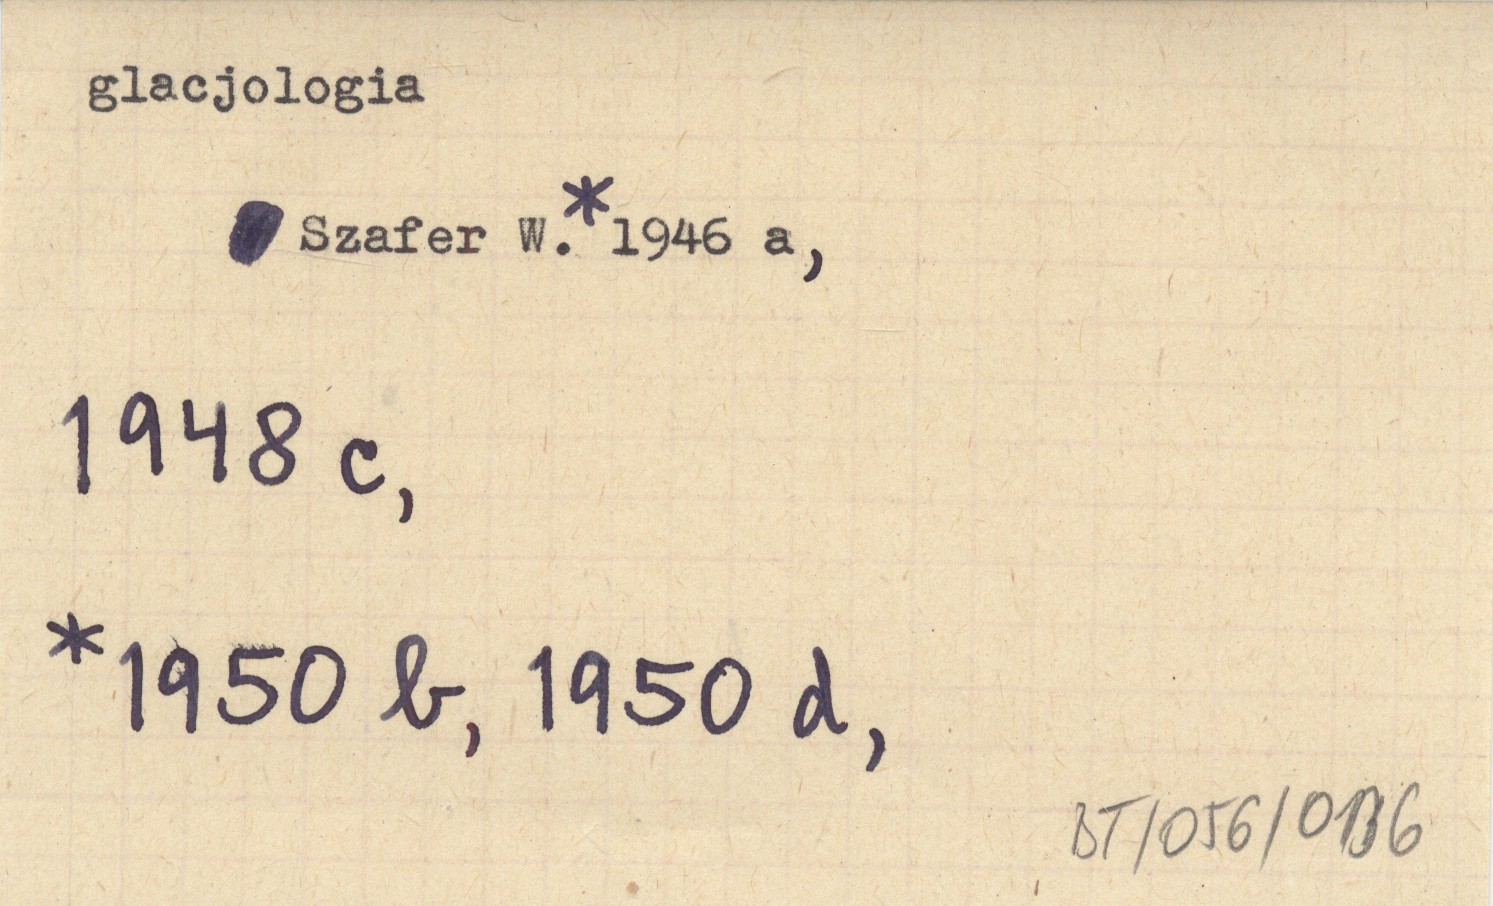 glacjologia
Szafer W.*1946 a,
1948 c,
*1950 b, 1950 d,
BT/056/0136